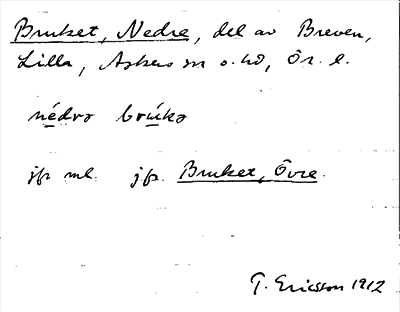 Bruket, Nedre, del av Breven,
Lilla, Askers sn o. hd, Ör. l.
nédrə brúkə
jfr ml. jfr. Bruket, Övre.
T. Ericsson 1912